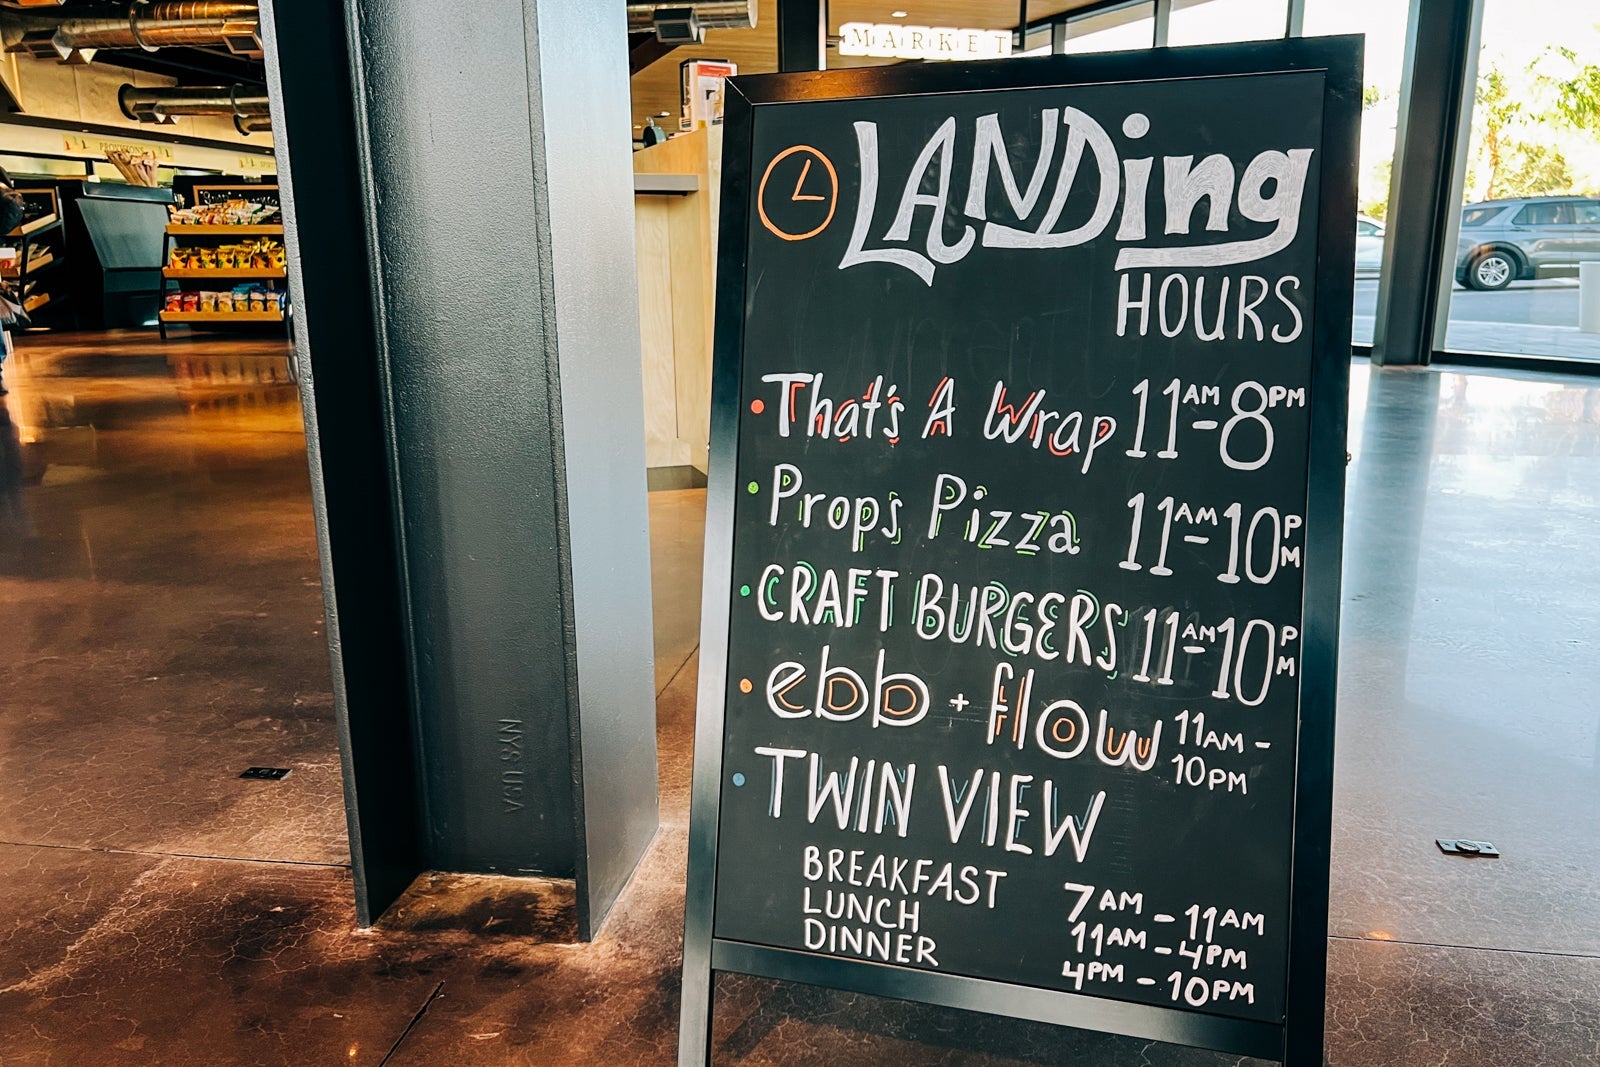 MARKET
PROVISIONS
LANDing
HOURS
That's A Wrap 11AM-8PM
Prop's Pizza 11AM-10PM
CRAFT BURGERS 11AM-10PM
ebb + flow 11AM-
10PM
TWIN VIEW
BREAKFAST 7AM - 11AM
LUNCH 11AM - 4PM
DINNER 4PM - 10PM
NYS USA